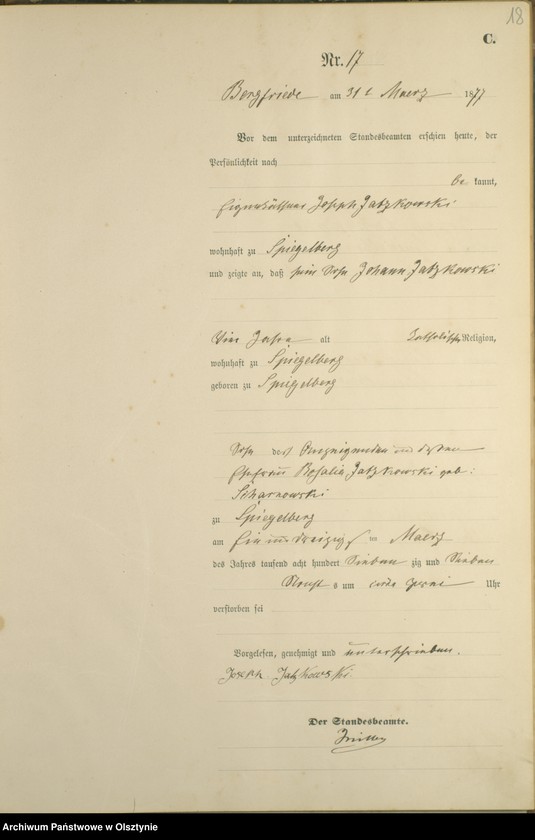 18
C.
Nr. 17
Bergfriede am 31 t Maerz 1877
Vor dem unterzeichneten Standesbeamten erschien heute, der
Persönlichkeit nach
be kannt,
Joseph Jatzkowski
wohnhaft zu Spiegelberg
und zeigte an, daß sein Sohn Johann Jatzkowski
Jahre alt katholischer Religion,
wohnhaft zu Spiegelberg
geboren zu Spiegelberg
Sohn des Anzeigenden und dessen
Ehefrau Rosalia Jatzkowski geb:
Scharnowski
zu Spiegelberg
am Ein und dreizigsten Maerz
des Jahres tausend acht hundert Sieben zig und Sieben
s um zwei Uhr
verstorben sei
Vorgelesen, genehmigt und unterschrieben.
Joseph Jatzkowski
Der Standesbeamte.
Archiwum Państwowe w Olsztynie